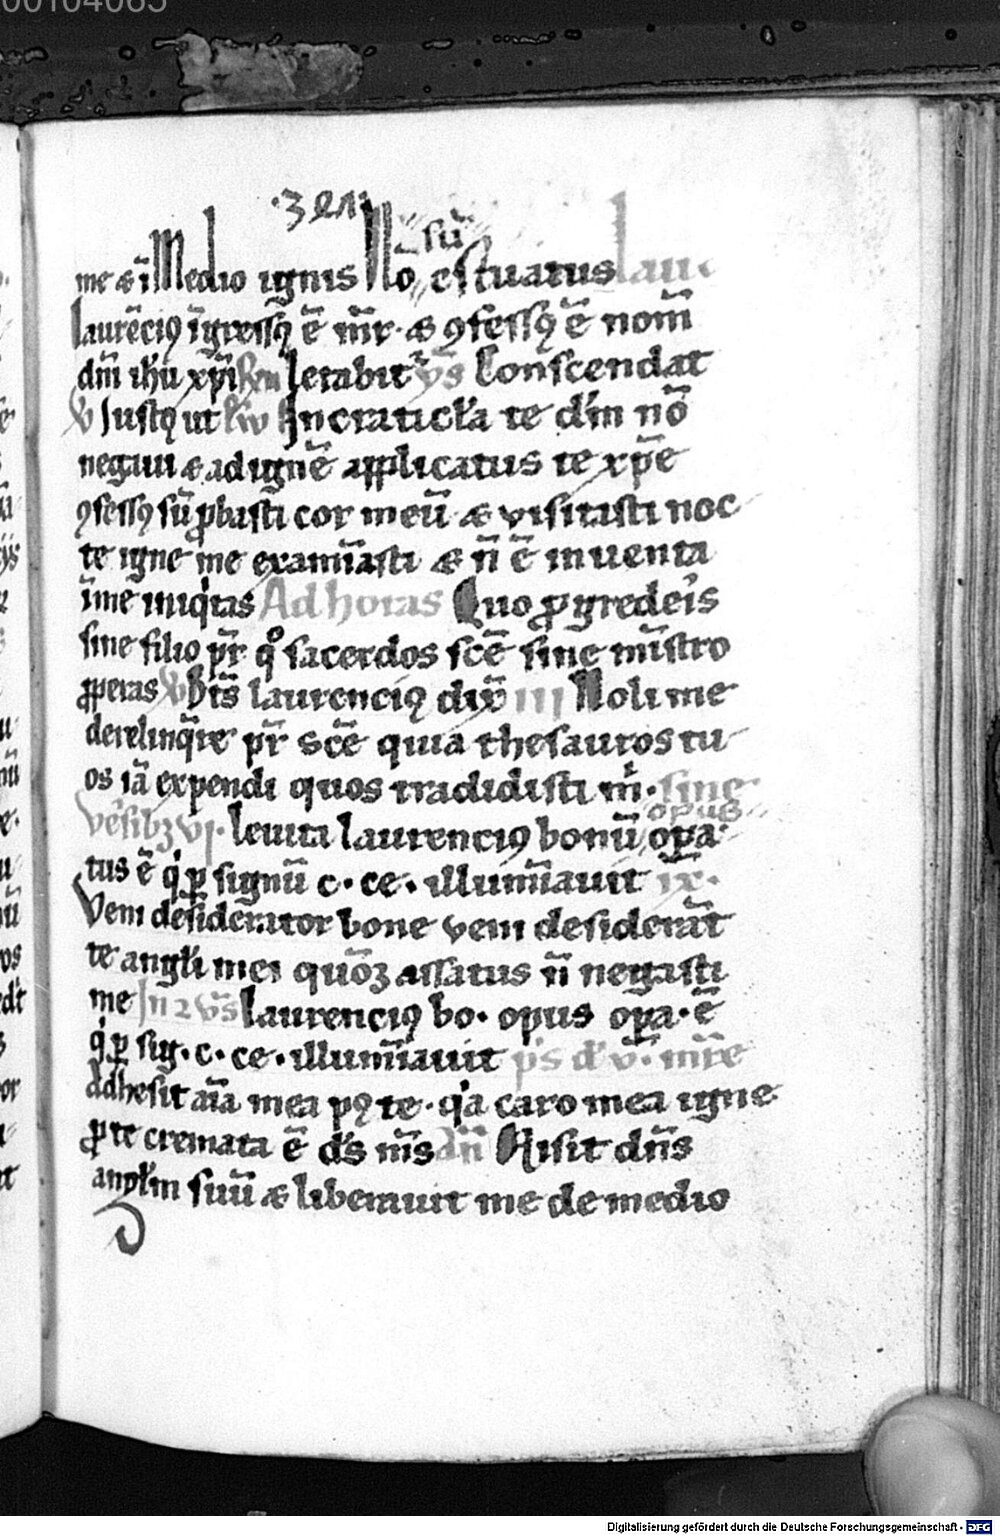 00104065
me & ī Medio ignis Nō sū estuatus lau
laurēciꝰ īgressꝰ ē mr̄ · & ꝯfessꝰ ē nom̄
dm̄ ihū xp̄i letabit᷑ v̄s Con̄scendat
Iustꝰ ut In craticl̄a te dm̄ nō
negaui & ad ignē applicatus te xp̄e
ꝯfessꝰ sū ꝓbasti cor meū & visitasti noc
te igne me examīasti & n̄ ē inuenta
ī me iniq̇tas Ad horas Quo ꝓgredeis
sine filio pr̄ qͦ sacerdos scē sine mīstro
ꝓperas Bt̄s laurenciꝰ dix̄ III Noli me
derelinq̄re pr̄ scē quia thesauros tu
os iā expendi quos tradidisti m̄ · sine
v̄sibꝫ vi · leuita laurenciꝰ bonū opus opa
tus ē q̇ ꝑ signū c · ce · illumīauit ix ·
Veni desiderator bone veni desiderāt
te angl̄i mei quō assatus n̄ negasti
me In 2 v̄s laurenciꝰ bo · opus opa · ē
q̇ ꝑ sig · c · ce · illumīauit ps̄ d̄ v̄ · mr̄e
Adhesit aīa mea pꝰ te · q̇a caro mea igne
ꝓ te cremata ē ds̄ m̄s an̄ Misit dn̄s
angl̄m suū & liberauit me de medio
Digitalisierung gefördert durch die Deutsche Forschungsgemeinschaft - DFG